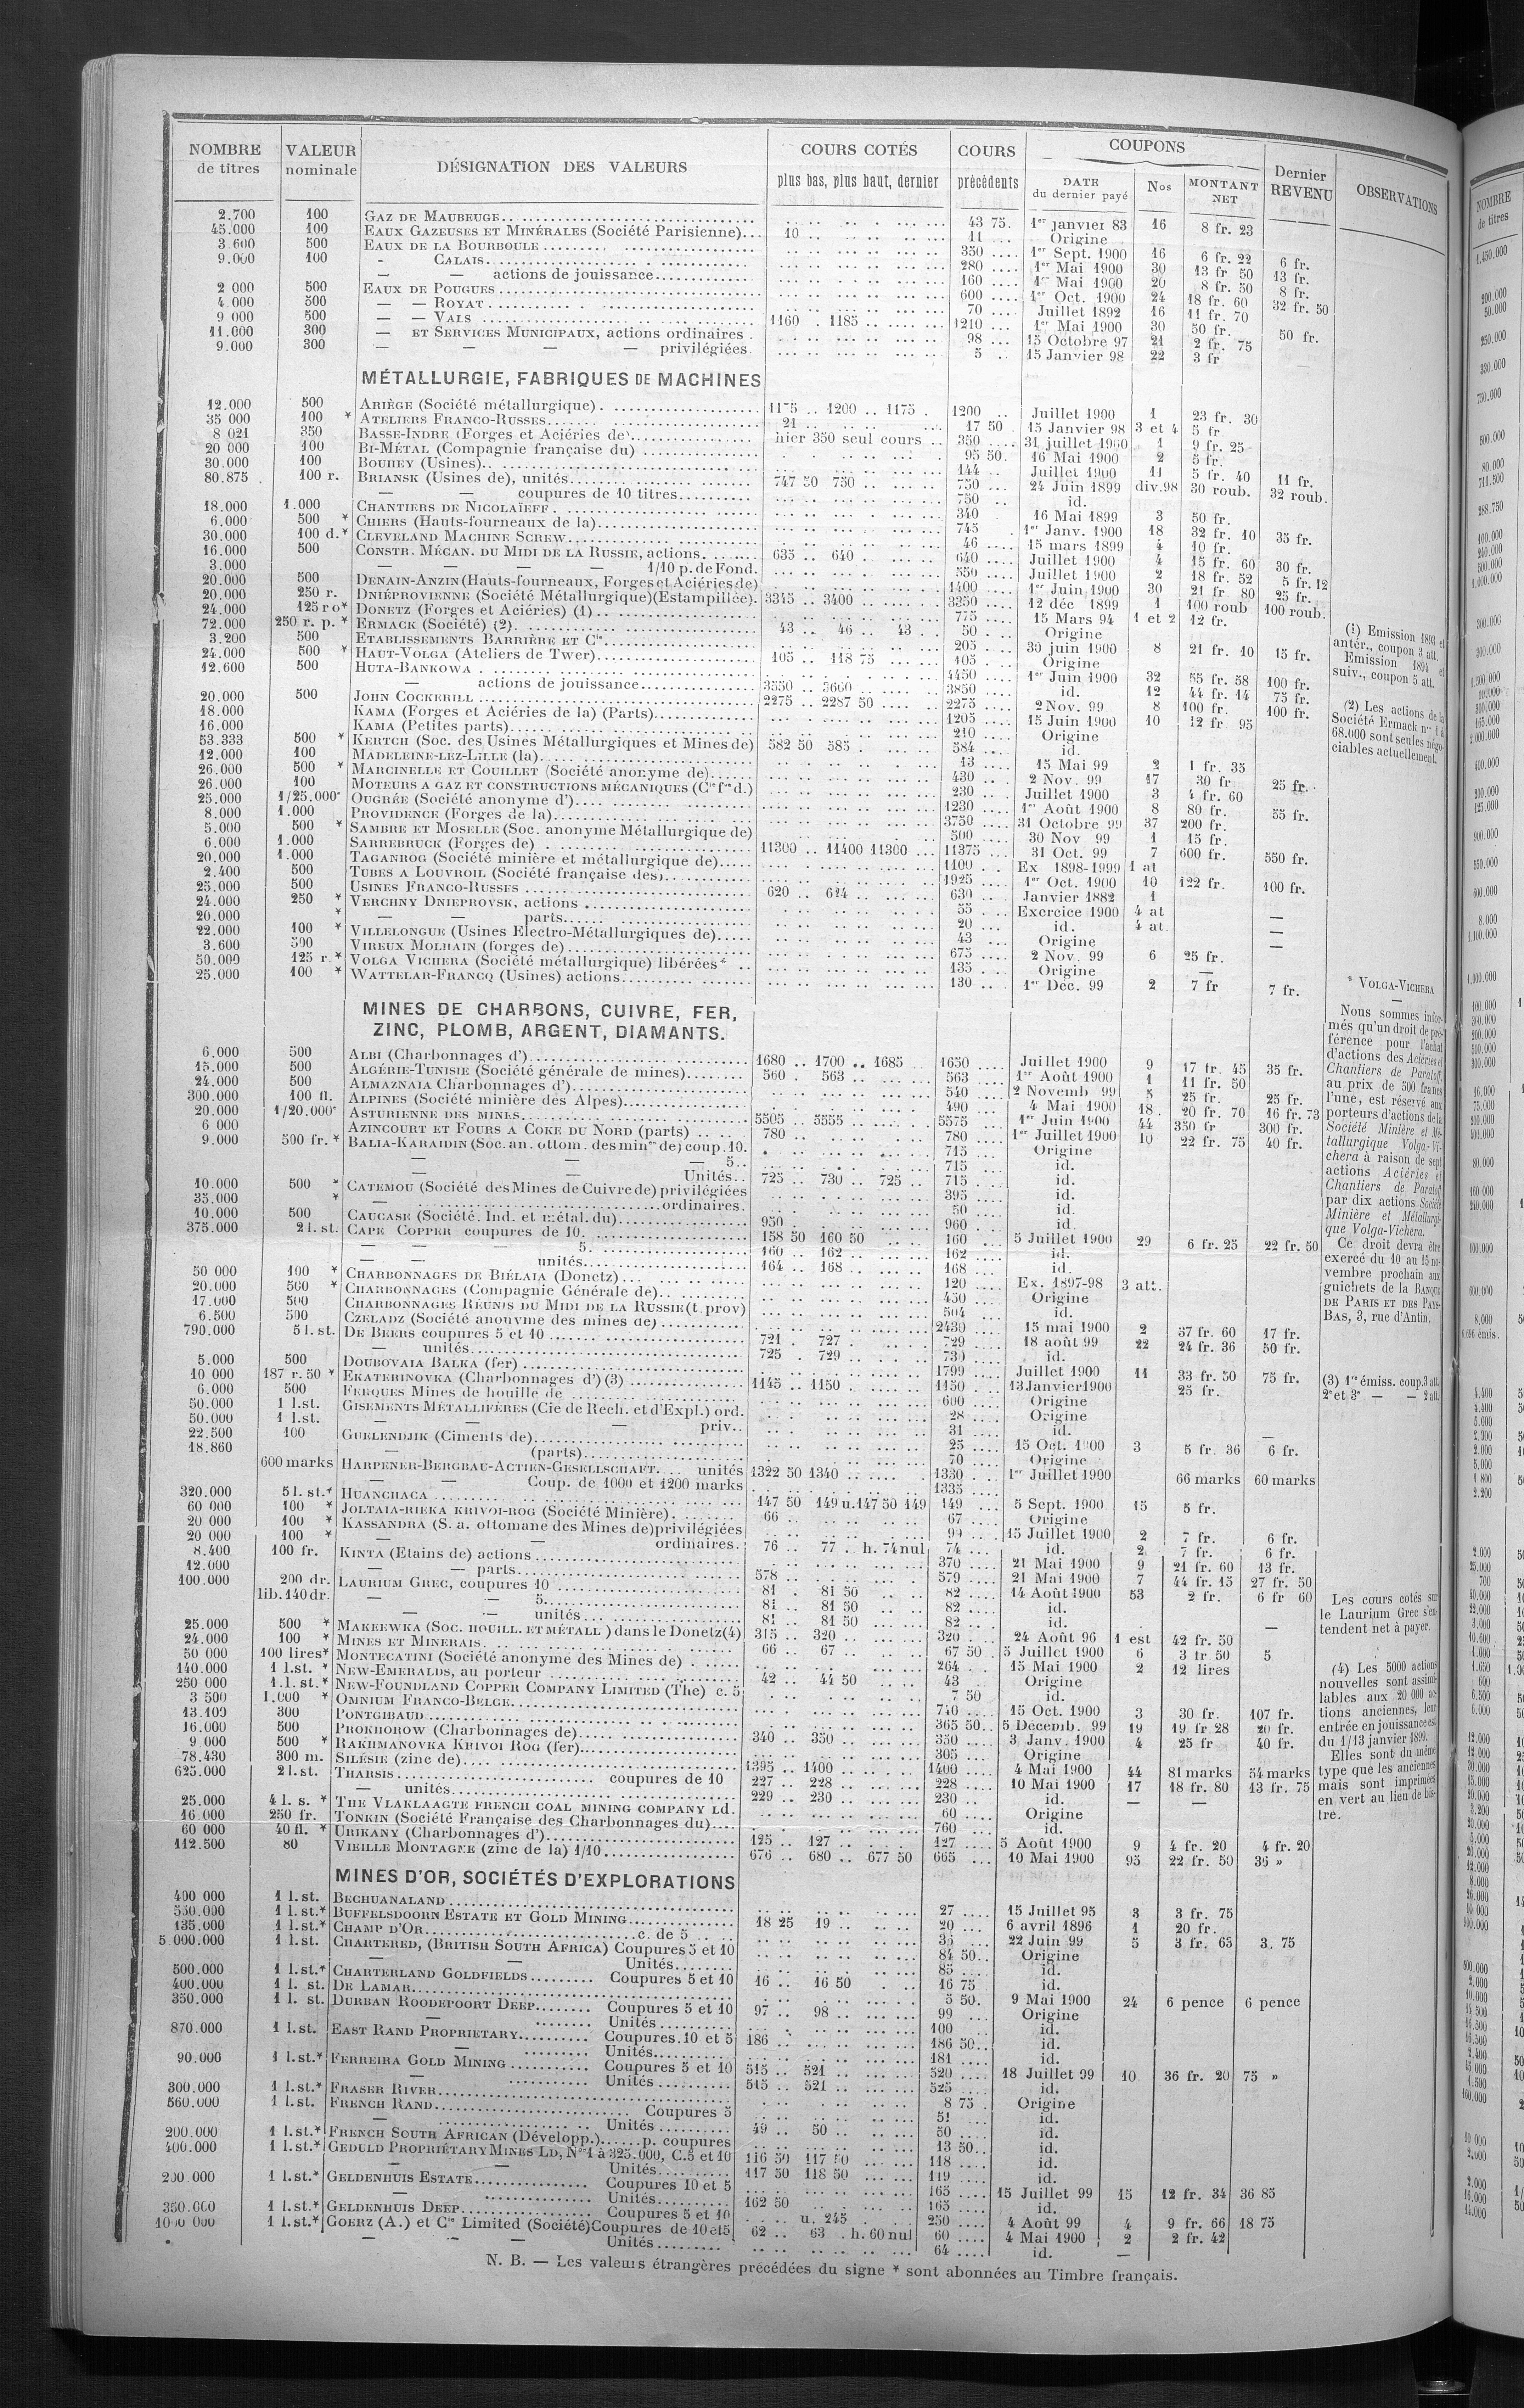 NOMBRE de titres | VALEUR nominale | DÉSIGNATION DES VALEURS | COURS COTÉS plus bas, plus haut, dernier | COURS précédents | COUPONS DATE du dernier payé | Nos | MONTANT NET | Dernier REVENU | OBSERVATIONS
2.700 100 GAZ DE MAUBEUGE 43 75 1er janvier 83 16 8 fr. 23
45.000 100 EAUX GAZEUSES ET MINÉRALES (Société Parisienne) 10 11 Origine
3.600 500 EAUX DE LA BOURBOULE 350 1er Sept. 1900 16 6 fr. 22 6 fr.
9.000 100 - CALAIS 280 1er Mai 1900 30 13 fr 50 13 fr.
— — actions de jouissance 160 1er Mai 1900 20 8 fr. 50 8 fr.
2 000 500 EAUX DE POUGUES 600 1er Oct. 1900 24 18 fr. 60 32 fr. 50
4.000 500 — — ROYAT 70 Juillet 1892 16 11 fr. 70
9 000 500 — — VALS 1160 1185 1210 1er Mai 1900 30 50 fr. 50 fr.
11.000 300 — ET SERVICES MUNICIPAUX, actions ordinaires 98 15 Octobre 97 21 2 fr. 75
9.000 300 — — — — privilégiées 5 15 Janvier 98 22 3 fr
MÉTALLURGIE, FABRIQUES DE MACHINES
12.000 500 ARIÈGE (Société métallurgique) 1175 1200 1175 1200 Juillet 1900 1 23 fr. 30
35 000 100 * ATELIERS FRANCO-RUSSES 21 17 50 15 Janvier 98 3 et 4 5 fr
8 021 350 BASSE-INDRE (Forges et Aciéries de) hier 350 seul cours 350 31 juillet 1900 1 9 fr. 25
20 000 100 BI-MÉTAL (Compagnie française du) 95 50 16 Mai 1900 2 5 fr.
30.000 100 BOUHEY (Usines) 144 Juillet 1900 11 5 fr. 40 11 fr.
80.875 100 r. BRIANSK (Usines de), unités 747 50 750 750 24 Juin 1899 div.98 30 roub. 32 roub.
— — coupures de 10 titres 750 id.
18.000 1.000 CHANTIERS DE NICOLAÏEFF 340 16 Mai 1899 3 50 fr.
6.000 500 * CHIERS (Hauts-fourneaux de la) 745 1er Janv. 1900 18 32 fr. 10 35 fr.
30.000 100 d.* CLEVELAND MACHINE SCREW 46 15 mars 1899 4 10 fr.
16.000 500 CONSTR. MÉCAN. DU MIDI DE LA RUSSIE, actions 635 640 640 Juillet 1900 4 15 fr. 60 30 fr.
3.000 — — — — 1/10 p. de Fond. 550 Juillet 1900 2 18 fr. 52 5 fr. 12
20.000 500 DENAIN-ANZIN (Hauts-fourneaux, Forges et Aciéries de) 1400 1er Juin 1900 30 21 fr 80 25 fr.
20.000 250 r. DNIÉPROVIENNE (Société Métallurgique)(Estampillée) 3345 3400 3350 12 déc 1899 1 100 roub 100 roub.
24.000 125 ro* DONETZ (Forges et Aciéries) (1) 775 15 Mars 94 1 et 2 12 fr.
72.000 250 r. p. * ERMACK (Société) (2) 43 46 43 50 Origine
3.200 500 ETABLISSEMENTS BARRIÈRE ET Cie 205 30 juin 1900 8 21 fr. 10 15 fr.
24.000 500 * HAUT-VOLGA (Ateliers de Twer) 105 118 75 105 Origine
12.600 500 HUTA-BANKOWA 4450 1er Juin 1900 32 55 fr. 58 100 fr.
— actions de jouissance 3550 3600 3850 id. 12 44 fr. 14 75 fr.
20.000 500 JOHN COCKERILL 2275 2287 50 2275 2 Nov. 99 8 100 fr. 100 fr.
18.000 KAMA (Forges et Aciéries de la) (Parts) 1205 15 Juin 1900 10 12 fr 95
16.000 KAMA (Petites parts) 210 Origine
53.333 500 * KERTCH (Soc. des Usines Métallurgiques et Mines de) 582 50 585 584 id.
12.000 100 MADELEINE-LEZ-LILLE (la) 13 15 Mai 99 2 1 fr. 35
26.000 500 * MARCINELLE ET COUILLET (Société anonyme de) 430 2 Nov. 99 17 30 fr 25 fr.
26.000 100 MOTEURS A GAZ ET CONSTRUCTIONS MÉCANIQUES (Cie fse d.) 230 Juillet 1900 3 4 fr. 60
25.000 1/25.000e OUGRÉE (Société anonyme d') 1230 1er Août 1900 8 80 fr. 55 fr.
8.000 1.000 PROVIDENCE (Forges de la) 3750 31 Octobre 99 37 200 fr.
5.000 500 * SAMBRE ET MOSELLE (Soc. anonyme Métallurgique de) 500 30 Nov 99 1 15 fr.
6.000 1.000 SARREBRUCK (Forges de) 11300 11400 11300 11375 31 Oct. 99 7 600 fr. 550 fr.
20.000 1.000 TAGANROG (Société minière et métallurgique de) 1100 Ex 1898-1999 1 at
2.400 500 TUBES A LOUVROIL (Société française des) 1925 1er Oct. 1900 10 122 fr. 100 fr.
25.000 500 USINES FRANCO-RUSSES 620 624 630 Janvier 1882 1
24.000 250 * VERCHNY DNIEPROVSK, actions 55 Exercice 1900 4 at —
20.000 * — — parts 20 id. 4 at. —
22.000 100 * VILLELONGUE (Usines Electro-Métallurgiques de) 43 Origine —
3.600 500 VIREUX MOLHAIN (forges de) 675 2 Nov. 99 6 25 fr.
50.000 125 r.* VOLGA VICHERA (Société métallurgique) libérées* 135 Origine —
25.000 100 * WATTELAR-FRANCQ (Usines) actions 130 1er Déc. 99 2 7 fr 7 fr.
MINES DE CHARBONS, CUIVRE, FER,
ZINC, PLOMB, ARGENT, DIAMANTS.
6.000 500 ALBI (Charbonnages d') 1680 1700 1685 1650 Juillet 1900 9 17 fr. 45 35 fr.
15.000 500 ALGÉRIE-TUNISIE (Société générale de mines) 560 563 563 1er Août 1900 1 11 fr. 50
24.000 500 ALMAZNAIA Charbonnages d') 540 2 Novemb 99 5 25 fr. 25 fr.
300.000 100 fl. ALPINES (Société minière des Alpes) 490 4 Mai 1900 18 20 fr. 70 16 fr. 73
20.000 1/20.000e ASTURIENNE DES MINES 5505 5555 5575 1er Juin 1900 44 350 fr 300 fr.
6 000 AZINCOURT ET FOURS A COKE DU NORD (parts) 780 780 1er Juillet 1900 10 22 fr. 75 40 fr.
9.000 500 fr. * BALIA-KARAIDIN (Soc. an. ottom. des mines de) coup. 10. 715 Origine
— — — 5 715 id.
Unités 725 730 725 715 id.
10.000 500 * CATEMOU (Société des Mines de Cuivre de) privilégiées 395 id.
35.000 * — ordinaires. 50 id.
10.000 500 CAUCASE (Société. Ind. et métal. du) 950 960 id.
375.000 2 l. st. CAPE COPPER coupures de 10. 158 50 160 50 160 5 Juillet 1900 29 6 fr. 25 22 fr. 50
— — 5. 160 162 162 id.
— unités 164 168 168 id.
50 000 100 * CHARBONNAGES DE BIÉLAIA (Donetz) 120 Ex. 1897-98 3 att.
20.000 500 * CHARBONNAGES (Compagnie Générale de) 450 Origine
17.000 500 CHARBONNAGES RÉUNIS DU MIDI DE LA RUSSIE (t. prov) 504 id.
6.500 500 CZELADZ (Société anonyme des mines de) 2430 15 mai 1900 2 37 fr. 60 17 fr.
790.000 5 l. st. DE BEERS coupures 5 et 10 721 727 729 18 août 99 22 24 fr. 36 50 fr.
— unités 725 729 730 id.
5.000 500 DOUBOVAIA BALKA (fer) 1799 Juillet 1900 11 33 fr. 50 75 fr.
10 000 187 r. 50 * EKATERINOVKA (Charbonnages d') (3) 1145 1150 1150 13 Janvier 1900 25 fr.
6.000 500 FERQUES Mines de houille de 600 Origine
50.000 1 l.st. GISEMENTS MÉTALLIFÈRES (Cie de Rech. et d'Expl.) ord. 28 Origine
50.000 1 l.st. — — — priv. 31 id.
22.500 100 GUELENDJIK (Ciments de) 25 15 Oct. 1900 3 5 fr. 36 6 fr.
18.860 — (parts) 70 Origine
600 marks HARPENER-BERGBAU-ACTIEN-GESELLSCHAFT unités 1322 50 1340 1330 1er Juillet 1900 66 marks 60 marks
— — Coup. de 1000 et 1200 marks 1335
320.000 5 l. st.* HUANCHACA 147 50 149 u.147 50 149 149 5 Sept. 1900 15 5 fr.
60 000 100 * JOLTAIA-RIEKA KRIVOI-ROG (Société Minière) 66 67 Origine
20 000 100 * KASSANDRA (S. a. ottomane des Mines de) privilégiées 99 15 Juillet 1900 2 7 fr. 6 fr.
20 000 100 * — — ordinaires. 76 77 h. 74 nul 74 id. 2 7 fr. 6 fr.
8.400 100 fr. KINTA (Etains de) actions 370 21 Mai 1900 9 21 fr. 60 13 fr.
12.000 — — parts 578 579 21 Mai 1900 7 44 fr. 15 27 fr. 50
100.000 200 dr. LAURIUM GREC, coupures 10 81 81 50 82 14 Août 1900 53 2 fr. 6 fr 60
lib. 140 dr. — — 5 81 81 50 82 id.
— — unités 81 81 50 82 id.
25.000 500 * MAKEEWKA (SOC. HOUILL. ET MÉTALL) dans le Donetz (4) 315 320 320 24 Août 96 1 est 42 fr. 50 —
24.000 100 * MINES ET MINERAIS 66 67 67 50 5 Juillet 1900 6 3 fr 50 5
50 000 100 lires* MONTECATINI (Société anonyme des Mines de) 264 15 Mai 1900 2 12 lires
140.000 1 l.st. * NEW-EMERALDS, au porteur 42 44 50 43 Origine
250 000 1 l. st. * NEW-FOUNDLAND COPPER COMPANY LIMITED (The) c. 5 7 50 id.
3 500 1.000 * OMNIUM FRANCO-BELGE 740 15 Oct. 1900 3 30 fr. 107 fr.
13.109 300 PONTGIBAUD 365 50 5 Décemb. 99 19 19 fr 28 20 fr.
16.000 500 PROKHOROW (Charbonnages de) 340 350 350 3 Janv. 1900 4 25 fr 40 fr.
9.000 500 * RAKHMANOVKA KRIVOI ROG (fer) 305 Origine
78.430 300 m. SILÉSIE (zinc de) 1395 1400 1400 4 Mai 1900 44 81 marks 54 marks
625.000 2 l. st. THARSIS coupures de 10 227 228 228 10 Mai 1900 17 18 fr. 80 13 fr. 75
— unités 229 230 230 id. — —
25.000 4 l. s. * THE VLAKLAAGTE FRENCH COAL MINING COMPANY Ld. 60 Origine
16.000 250 fr. TONKIN (Société Française des Charbonnages du) 760 id.
60 000 40 fl. * URIKANY (Charbonnages d') 125 127 127 5 Août 1900 9 4 fr. 20 4 fr. 20
112.500 80 VIEILLE MONTAGNE (zinc de la) 1/10 676 680 677 50 665 10 Mai 1900 95 22 fr. 50 36 »
MINES D'OR, SOCIÉTÉS D'EXPLORATIONS
400 000 1 l. st. BECHUANALAND 27 15 Juillet 95 3 3 fr. 75
550.000 1 l. st.* BUFFELSDOORN ESTATE ET GOLD MINING 18 25 19 20 6 avril 1896 1 20 fr.
135.000 1 l. st.* CHAMP D'OR c. de 5 22 Juin 99 5 3 fr. 65 3. 75
5 000.000 1 l. st. CHARTERED, (BRITISH SOUTH AFRICA) Coupures 5 et 10 84 50 Origine
— — Unités 85 id.
500.000 1 l. st.* CHARTERLAND GOLDFIELDS Coupures 5 et 10 16 16 50 16 75 id.
400.000 1 l. st. DE LAMAR 5 50 9 Mai 1900 24 6 pence 6 pence
350.000 1 l. st. DURBAN ROODEPOORT DEEP Coupures 5 et 10 97 98 99 Origine
— Unités 100 id.
870.000 1 l.st. EAST RAND PROPRIETARY Coupures. 10 et 5 186 186 50 id.
— Unités 181 id.
90.000 1 l.st.* FERREIRA GOLD MINING Coupures 5 et 10 515 521 520 18 Juillet 99 10 36 fr. 20 75 »
— Unités 515 521 525 id.
300.000 1 l.st.* FRASER RIVER 8 75 Origine
560.000 1 l.st. FRENCH RAND Coupures 5 51 id.
— Unités 49 50 50 id.
200.000 1 l.st.* FRENCH SOUTH AFRICAN (Développ.) p. coupures 13 50 id.
400.000 1 l.st.* GEDULD PROPRIÉTARY MINES LD, Nos 1 à 325.000, C. 5 et 10 116 50 117 50 118 id.
— — Unités 117 50 118 50 119 id.
200.000 1 l.st.* GELDENHUIS ESTATE Coupures 10 et 5 165 15 Juillet 99 15 12 fr. 34 36 85
— Unités 162 50 165 id.
350.000 1 l.st.* GELDENHUIS DEEP Coupures 5 et 10 u. 245 250 4 Août 99 4 9 fr. 66 18 75
1000 000 1 l.st.* GOERZ (A.) et Cie Limited (Société) Coupures de 10 et 5 62 63 h. 60 nul 60 4 Mai 1900 2 2 fr. 42
— — — Unités 64 id. —
N. B. — Les valeurs étrangères précédées du signe * sont abonnées au Timbre français.
(1) Emission 1893 et
antér., coupon 3 att.
Emission 1894 et
suiv., coupon 5 att.
(2) Les actions de la
Société Ermack nos 1 à
68.000 sont seules négo-
ciables actuellement.
* VOLGA-VICHERA
—
Nous sommes infor-
més qu'un droit de pré-
férence pour l'achat
d'actions des Aciéries et
Chantiers de Paratoff,
au prix de 500 francs
l'une, est réservé aux
porteurs d'actions de la
Société Minière et Mé-
tallurgique Volga-Vi-
chera à raison de sept
actions Aciéries et
Chantiers de Paratoff
par dix actions Société
Minière et Métallurgi-
que Volga-Vichera.
Ce droit devra être
exercé du 10 au 15 no-
vembre prochain aux
guichets de la BANQUE
DE PARIS ET DES PAYS-
BAS, 3, rue d'Antin.
(3) 1re émiss. coup. 3 att.
2e et 3e — — 2 att.
Les cours cotés sur
le Laurium Grec s'en-
tendent net à payer.
(4) Les 5000 actions
nouvelles sont assimi-
lables aux 20 000 ac-
tions anciennes, leur
entrée en jouissance est
du 1/13 janvier 1899.
Elles sont du même
type que les anciennes
mais sont imprimées
en vert au lieu de bis-
tre.
NOMBRE
de titres